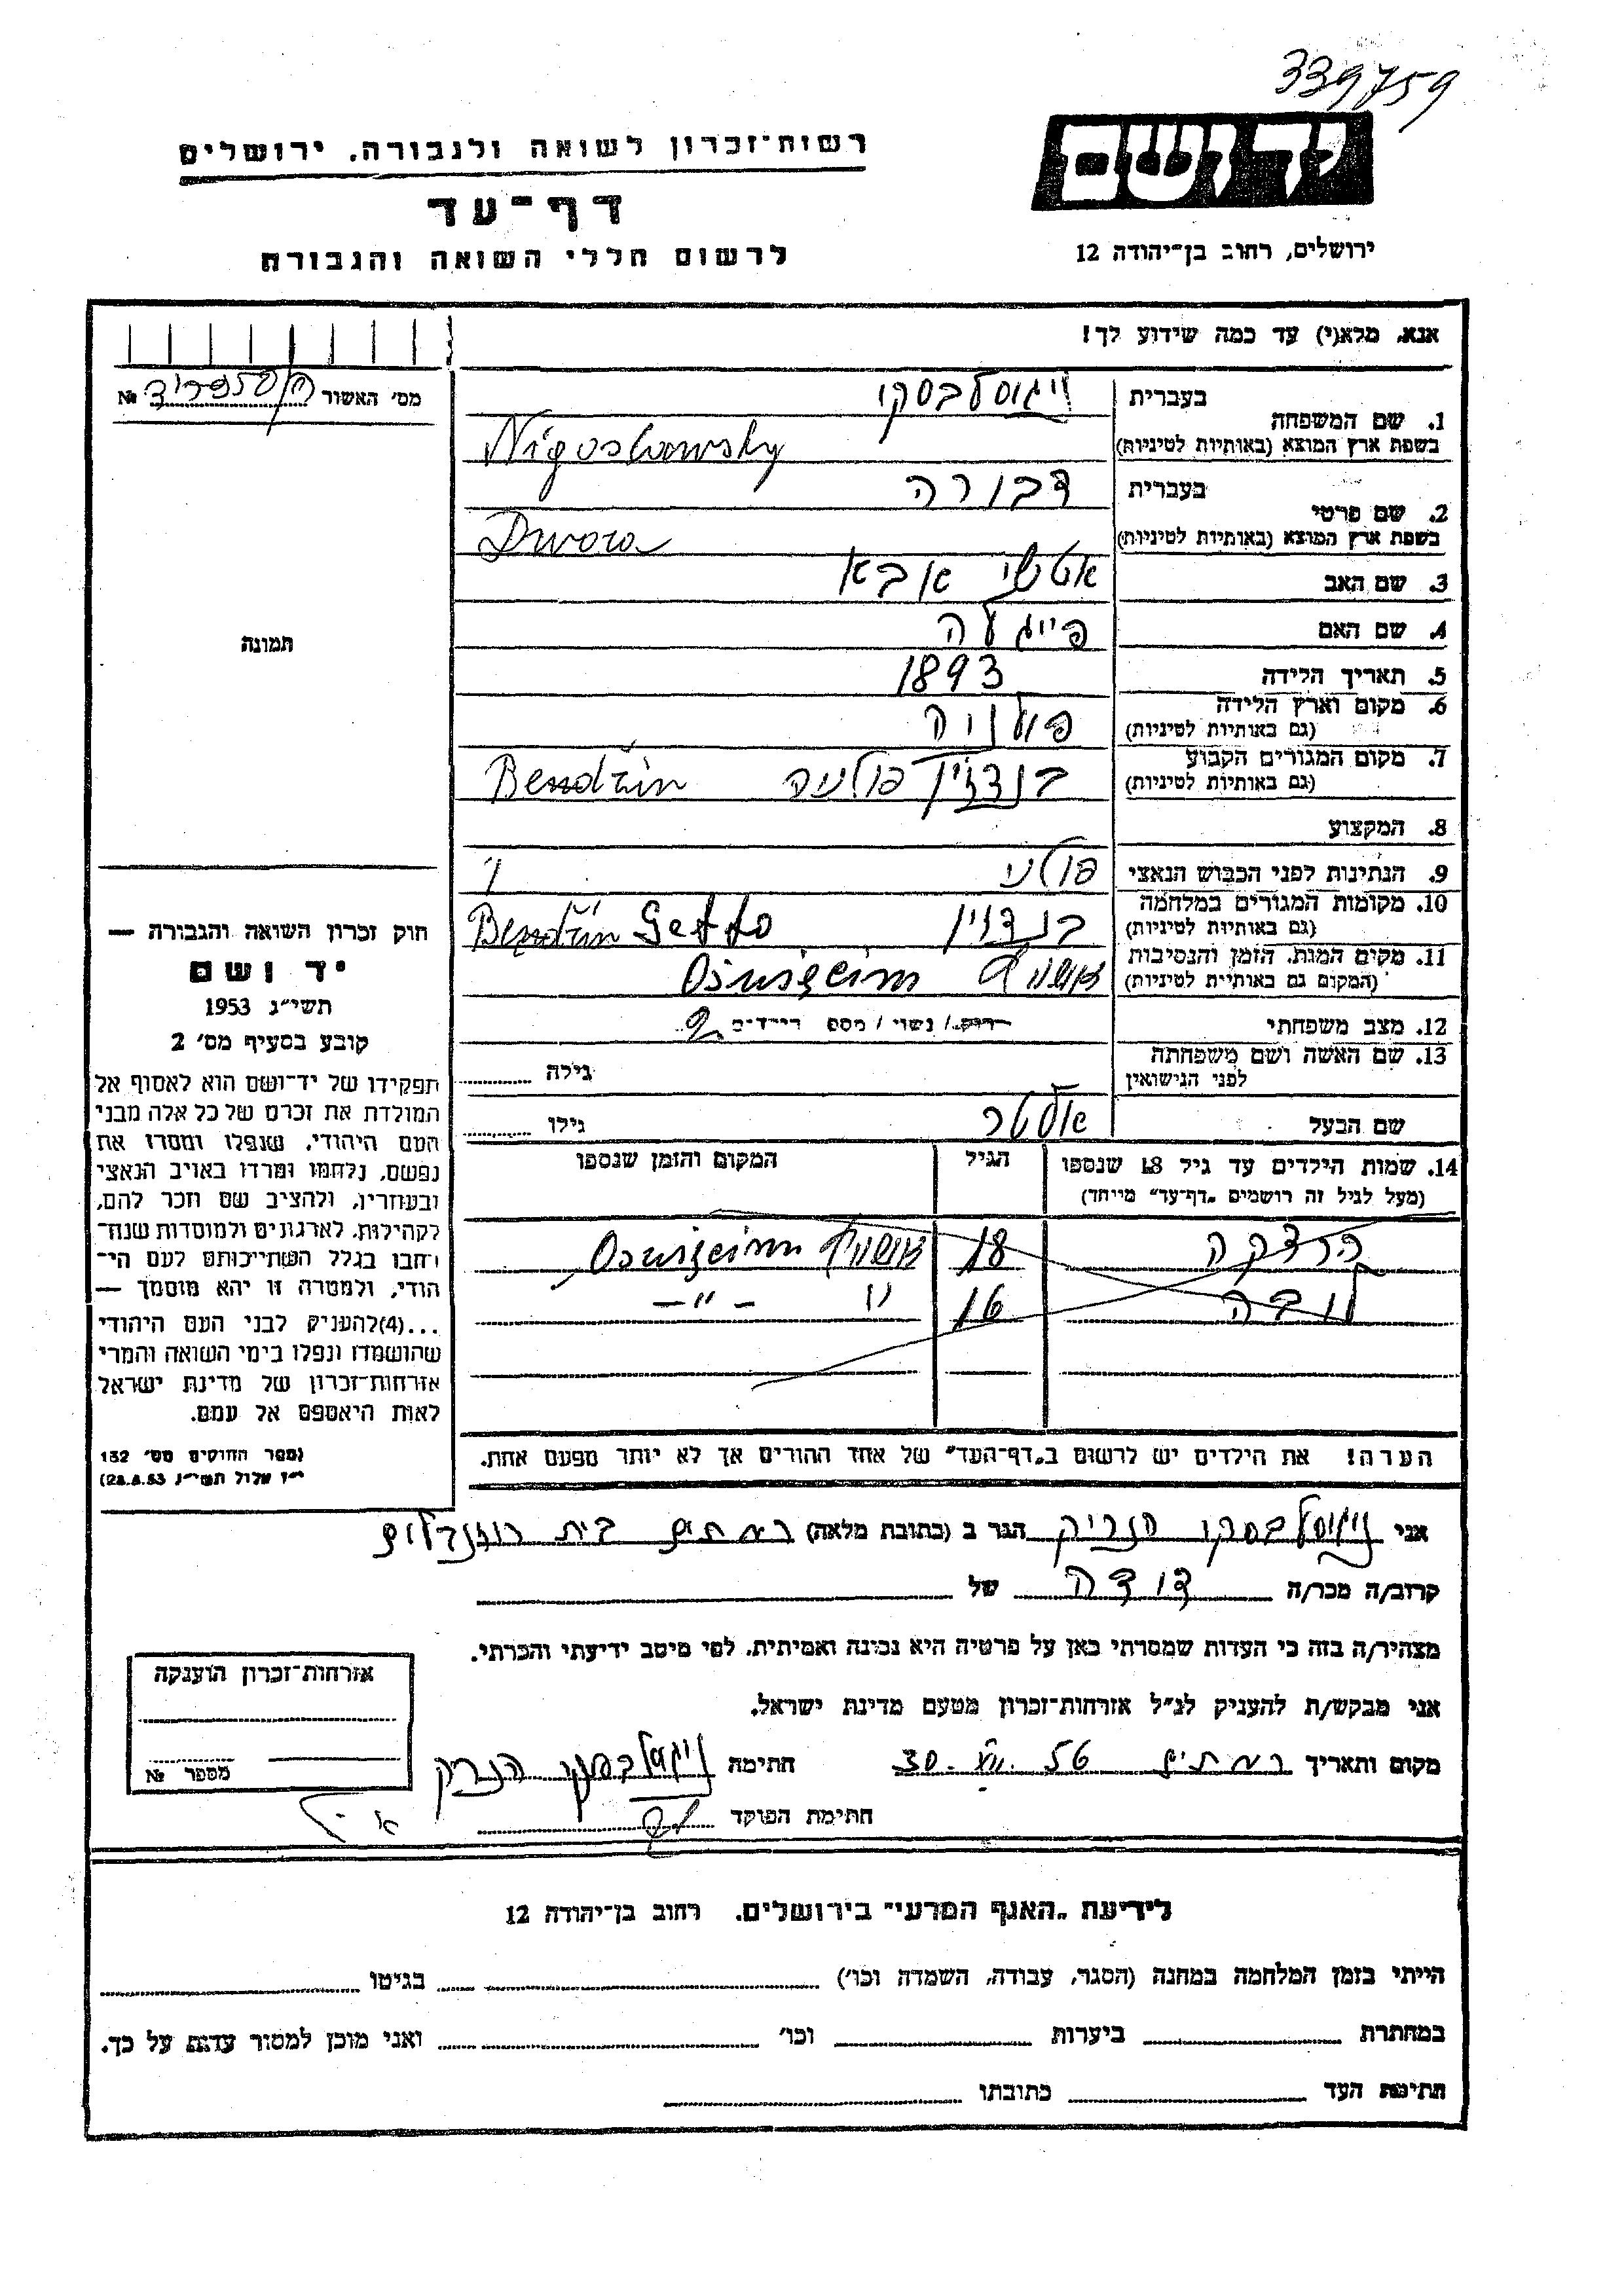 339759
רשות־זכרון לשואה ולגבורה, ירושלים
יד ושם
דף־עד
לרשום חללי השואה והגבורה
ירושלים, רחוב בן־יהודה 12
אנא, מלא(י) עד כמה שידוע לך!
מס׳ האשור № 
בעברית
1. שם המשפחה
בשפת ארץ המוצא (באותיות לטיניות) Nigoslawsky
בעברית דבורה
2. שם פרטי
בשפת ארץ המוצא (באותיות לטיניות) Dwora
3. שם האב אבא
4. שם האם פייגלה
5. תאריך הלידה 1893
6. מקום וארץ הלידה פולניה
(גם באותיות לטיניות)
7. מקום המגורים הקבוע בנדזין פולניה Bendzin
(גם באותיות לטיניות)
8. המקצוע
9. הנתינות לפני הכבוש הנאצי פולני
10. מקומות המגורים במלחמה בנדזין Bendzin Getto
(גם באותיות לטיניות)
11. מקום המות, הזמן והנסיבות אושויץ Oświęcim
(המקום גם באותיות לטיניות)
12. מצב משפחתי רוק/ נשוי/ מספר ילדים 2
13. שם האשה ושם משפחתה גילה
לפני הנישואין
שם הבעל אלטר גילו
14. שמות הילדים עד גיל 18 שנספו הגיל המקום והזמן שנספו
(מעל לגיל זה רושמים „דף־עד” מייחד)
18 אושויץ Oświęcim
לובה 16 " — " —
הערה! את הילדים יש לרשום ב„דף־העד” של אחד ההורים אך לא יותר מפעם אחת.
תמונה
חוק זכרון השואה והגבורה —
יד ושם
תשי״ג 1953
קובע בסעיף מס׳ 2
תפקידו של יד־ושם הוא לאסוף אל
המולדת את זכרם של כל אלה מבני
העם היהודי, שנפלו ומסרו את
נפשם, נלחמו ומרדו באויב הנאצי
ובעוזריו, ולהציב שם וזכר להם,
לקהילות, לארגונים ולמוסדות שנח־
רבו בגלל השתייכותם לעם הי־
הודי, ולמטרה זו יהא מוסמך —
...(4) להעניק לבני העם היהודי
שהושמדו ונפלו בימי השואה והמרי
אזרחות־זכרון של מדינת ישראל
לאות היאספם אל עמם.
(ספר החוקים מס׳ 132
י״ז אלול תשי״ג 28.8.53)
אני הנריק הגר ב (כתובת מלאה) רמתים בית
קרוב/ה מכר/ה דודה של
מצהיר/ה בזה כי העדות שמסרתי כאן על פרטיה היא נכונה ואמיתית, לפי מיטב ידיעתי והכרתי.
אני מבקש/ת להעניק לנ״ל אזרחות־זכרון מטעם מדינת ישראל.
מקום ותאריך רמתים 30. VII. 56 חתימה הנריק
חתימת הפוקד
אזרחות־זכרון הוענקה
מספר №
לידיעת „האגף המדעי” בירושלים, רחוב בן־יהודה 12
הייתי בזמן המלחמה במחנה (הסגר, עבודה, השמדה וכו׳) בגיטו
במחתרת ביערות וכו׳ ואני מוכן למסור עדות על כך.
חתימת העד כתובתו